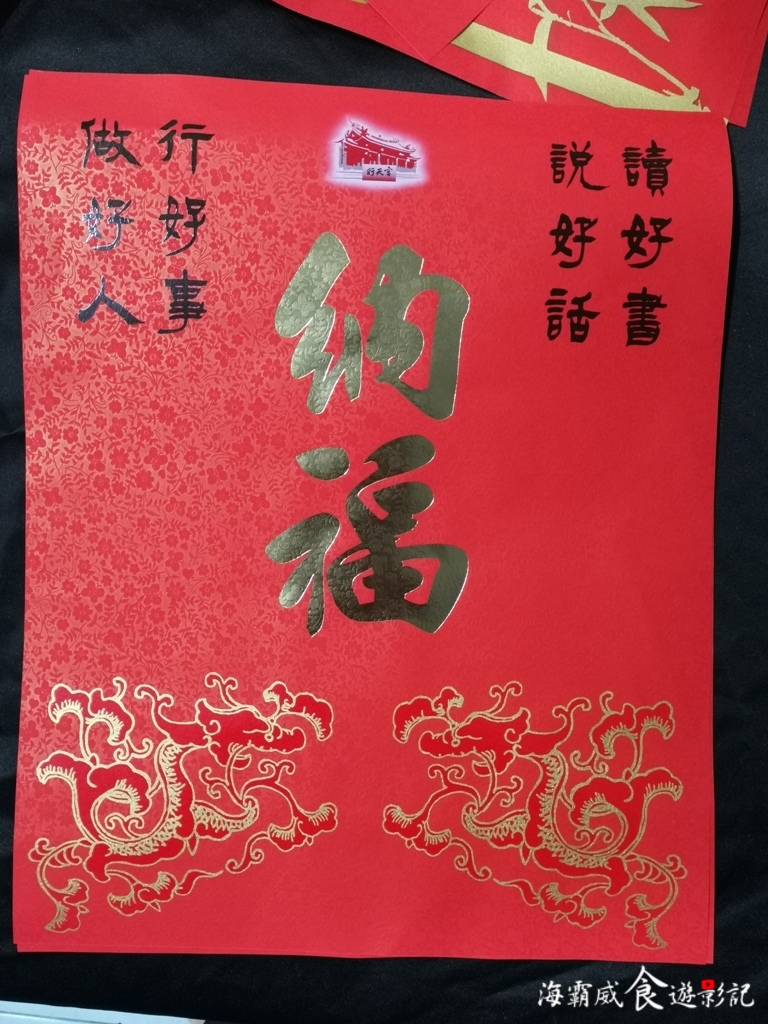 讀好書
說好話
行天宮
納福
行好事
做好人
海霸威食遊影記